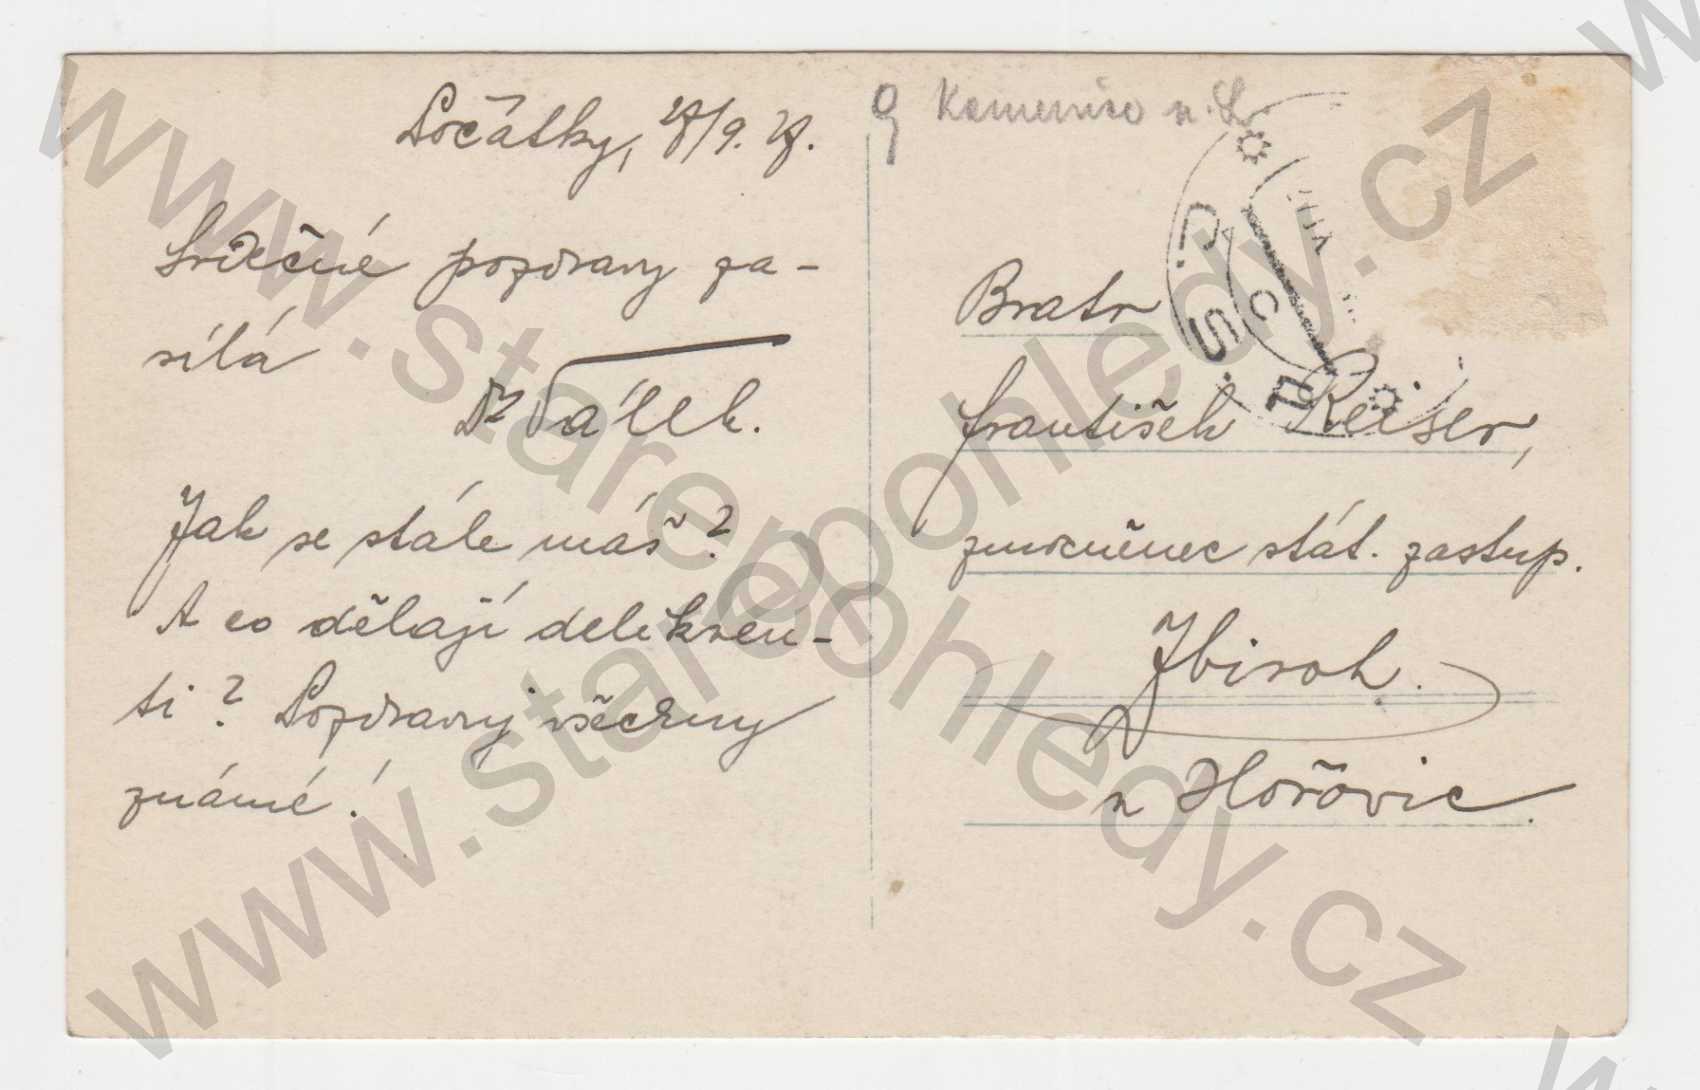 Počátky, 28/9. 28.
Srdečné pozdravy za-
sílá
Dr Válek.
Jak se stále máš?
A co dělají delikven-
ti? Pozdravuj všechny
známé!
9 Kamenice n. L.
Bratr
František Reiser,
zmocněnec stát. zastup.
Zbiroh.
u Hořovic.
www.starepohledy.cz
www.starepohledy.cz